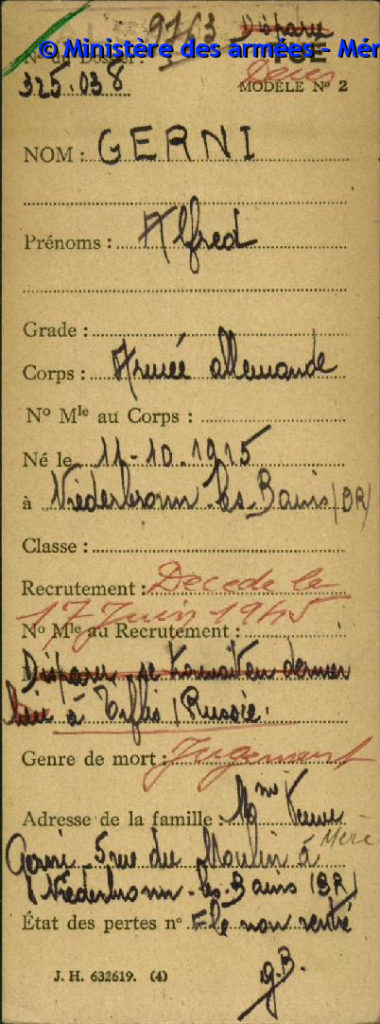 9763 Disparu
© Ministère des armées - Mém
N° du Dossier :
325.038
Deces
MODÈLE N° 2
NOM : GERNI
Prénoms : Alfred
Grade :
Corps : Armée allemande
N° Mle au Corps :
Né le 11-10-1915
à Niederbronn-les-Bains (BR)
Classe :
Recrutement : Décédé le
17 Juin 1945
N° Mle au Recrutement :
Disparu, se trouvait en dernier
lieu à Tiflis (Russie.
Genre de mort : Jugement
Adresse de la famille : Mme Veuve
Mère
Gerni 5 rue du Moulin à
Niederbronn-les-Bains (BR)
État des pertes n° = Ele non rentré
J. H. 632619. (4)
g.B.